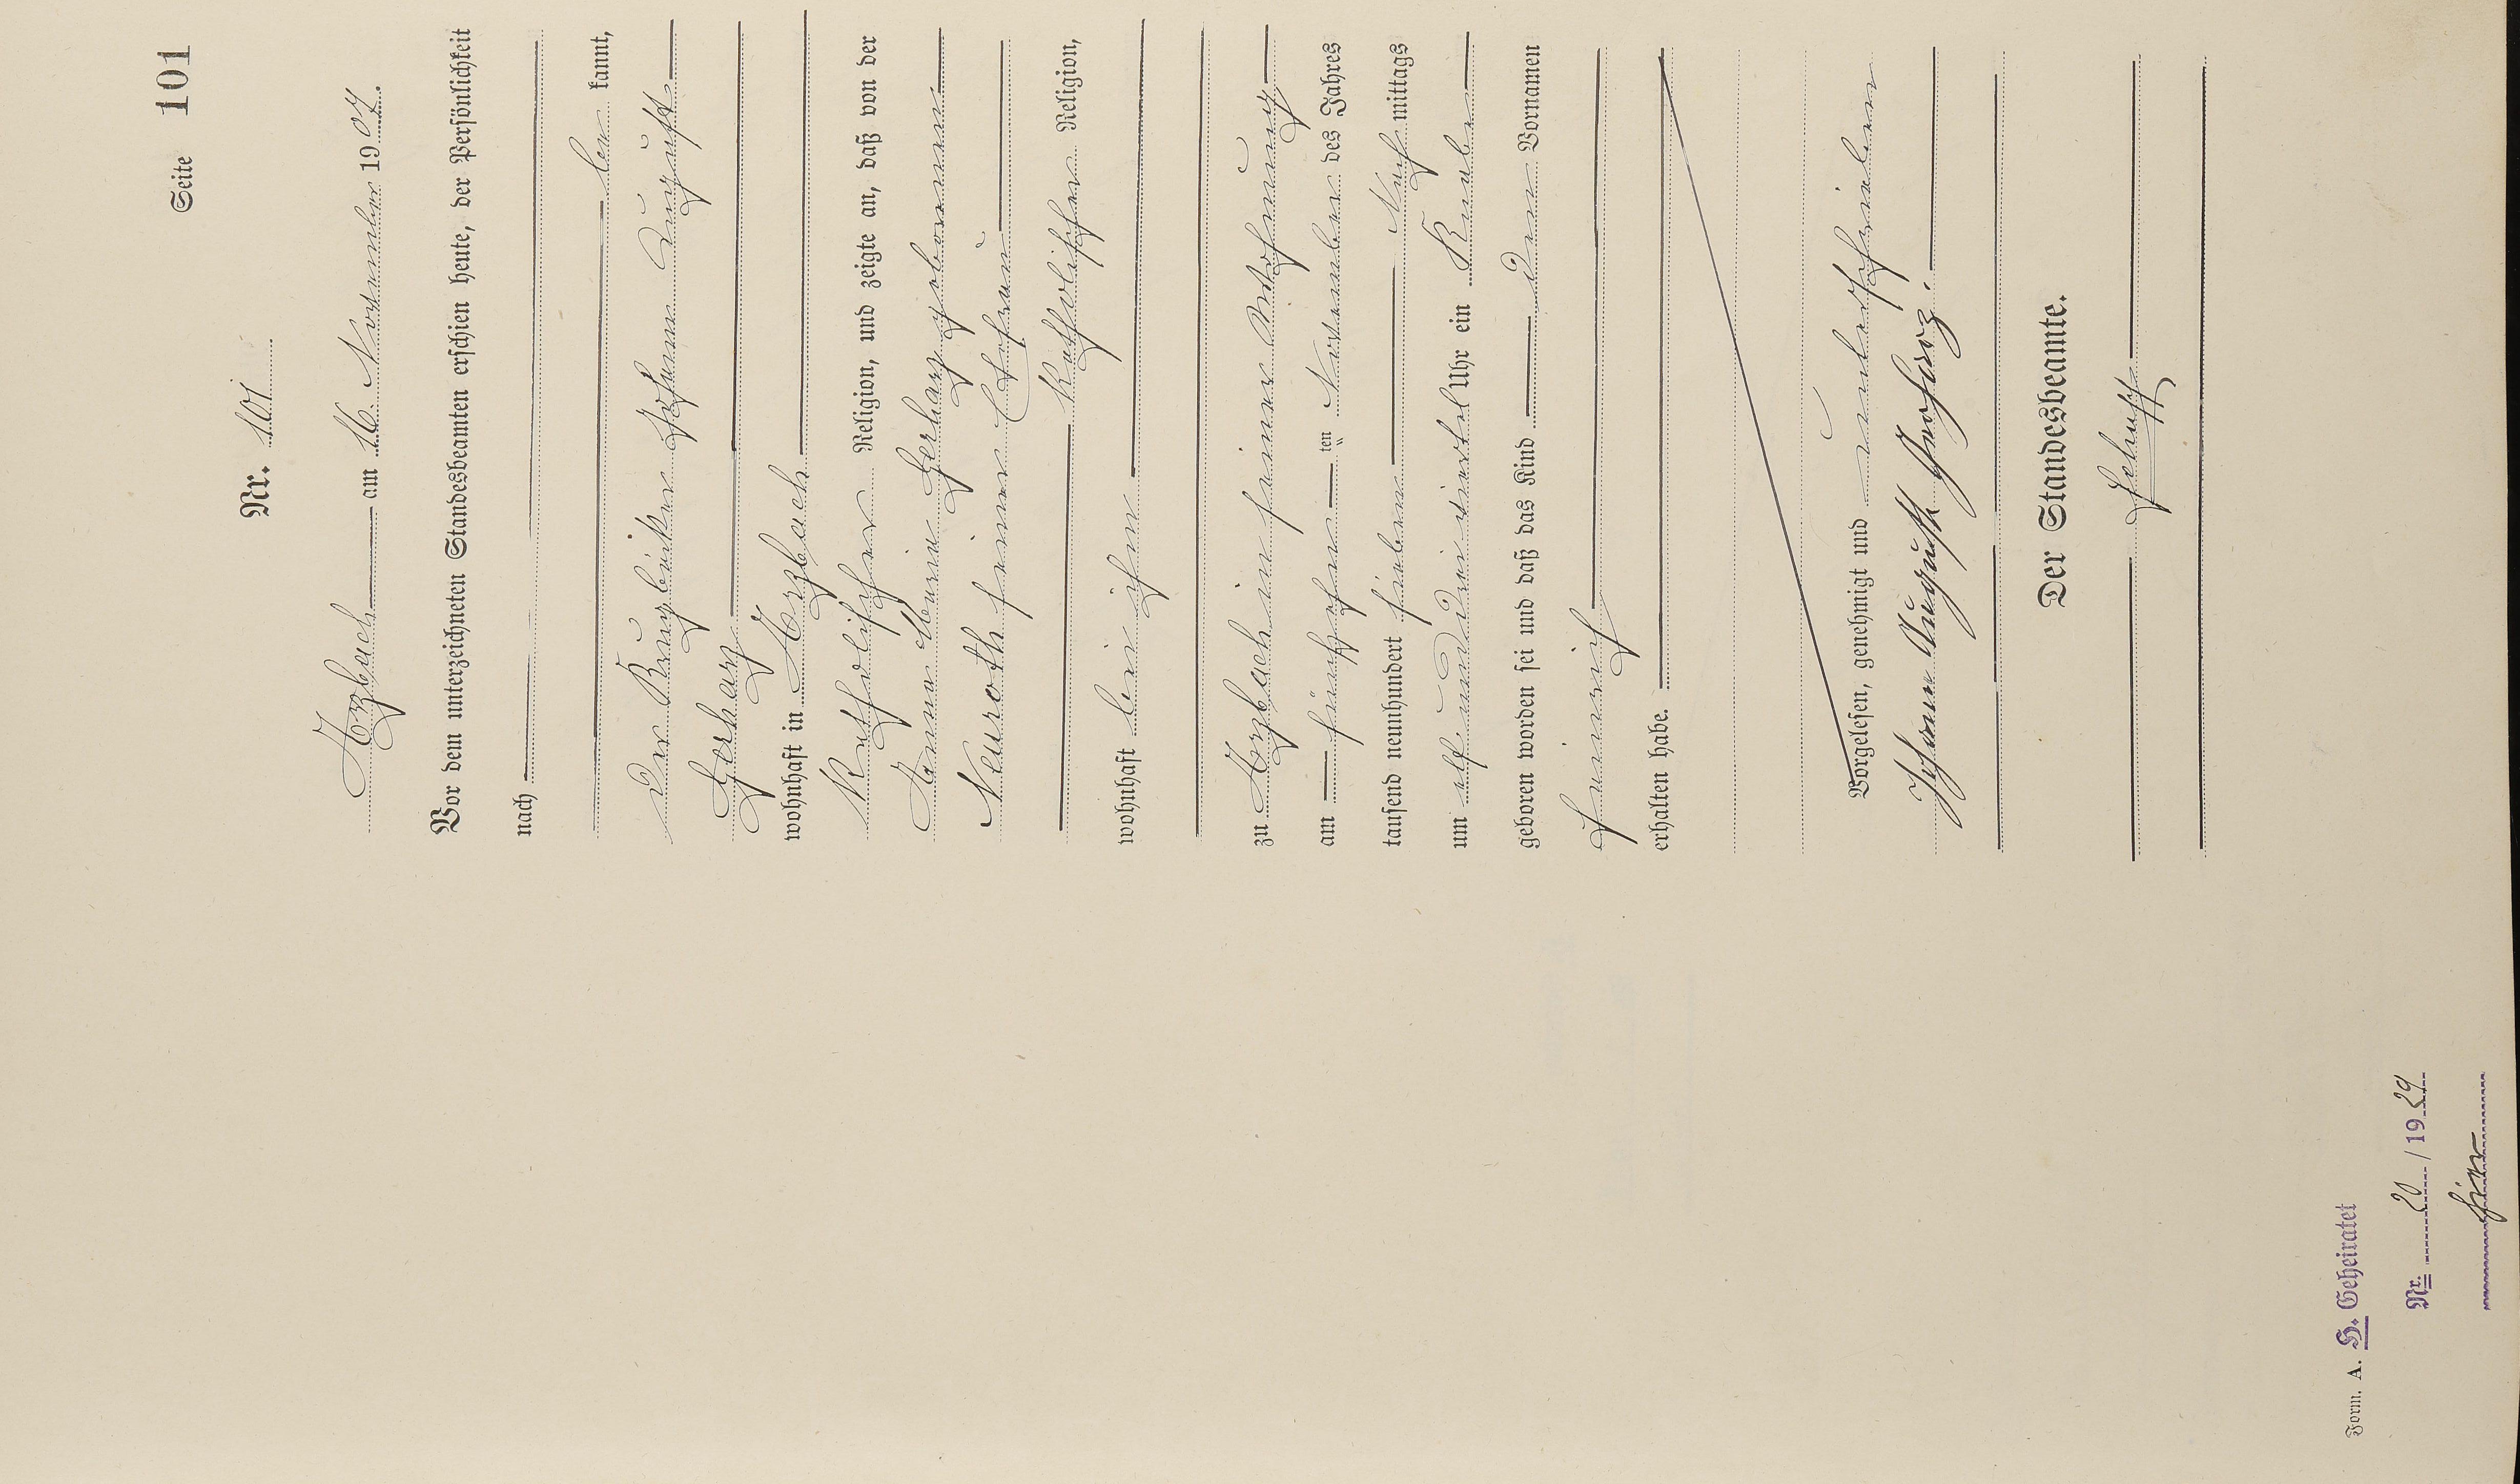 Seite 101
Nr. 101
Arzbach am 16. November 1907.
Vor dem unterzeichneten Standesbeamten erschien heute, der Persönlichkeit
nach
be kannt,
der Johann August
Gerharz
wohnhaft in Arzbach
Katholischer Religion, und zeigte an, daß von der
Anna Maria Gerharz geborenen
Neuroth seiner Ehefrau
Katholischer Religion,
wohnhaft bei ihm
zu Arzbach in seiner Wohnung
am fünfzehn ten November des Jahres
tausend neunhundert sieben Nach mittags
um elf und drei viertel Uhr ein Knabe
geboren worden sei und daß das Kind den Vornamen
Heinrich
erhalten habe.
Vorgelesen, genehmigt und unterschrieben
Johann August Gerharz.
Der Standesbeamte.
Form. A. H. Geheiratet
Nr. 20 / 1929
hier